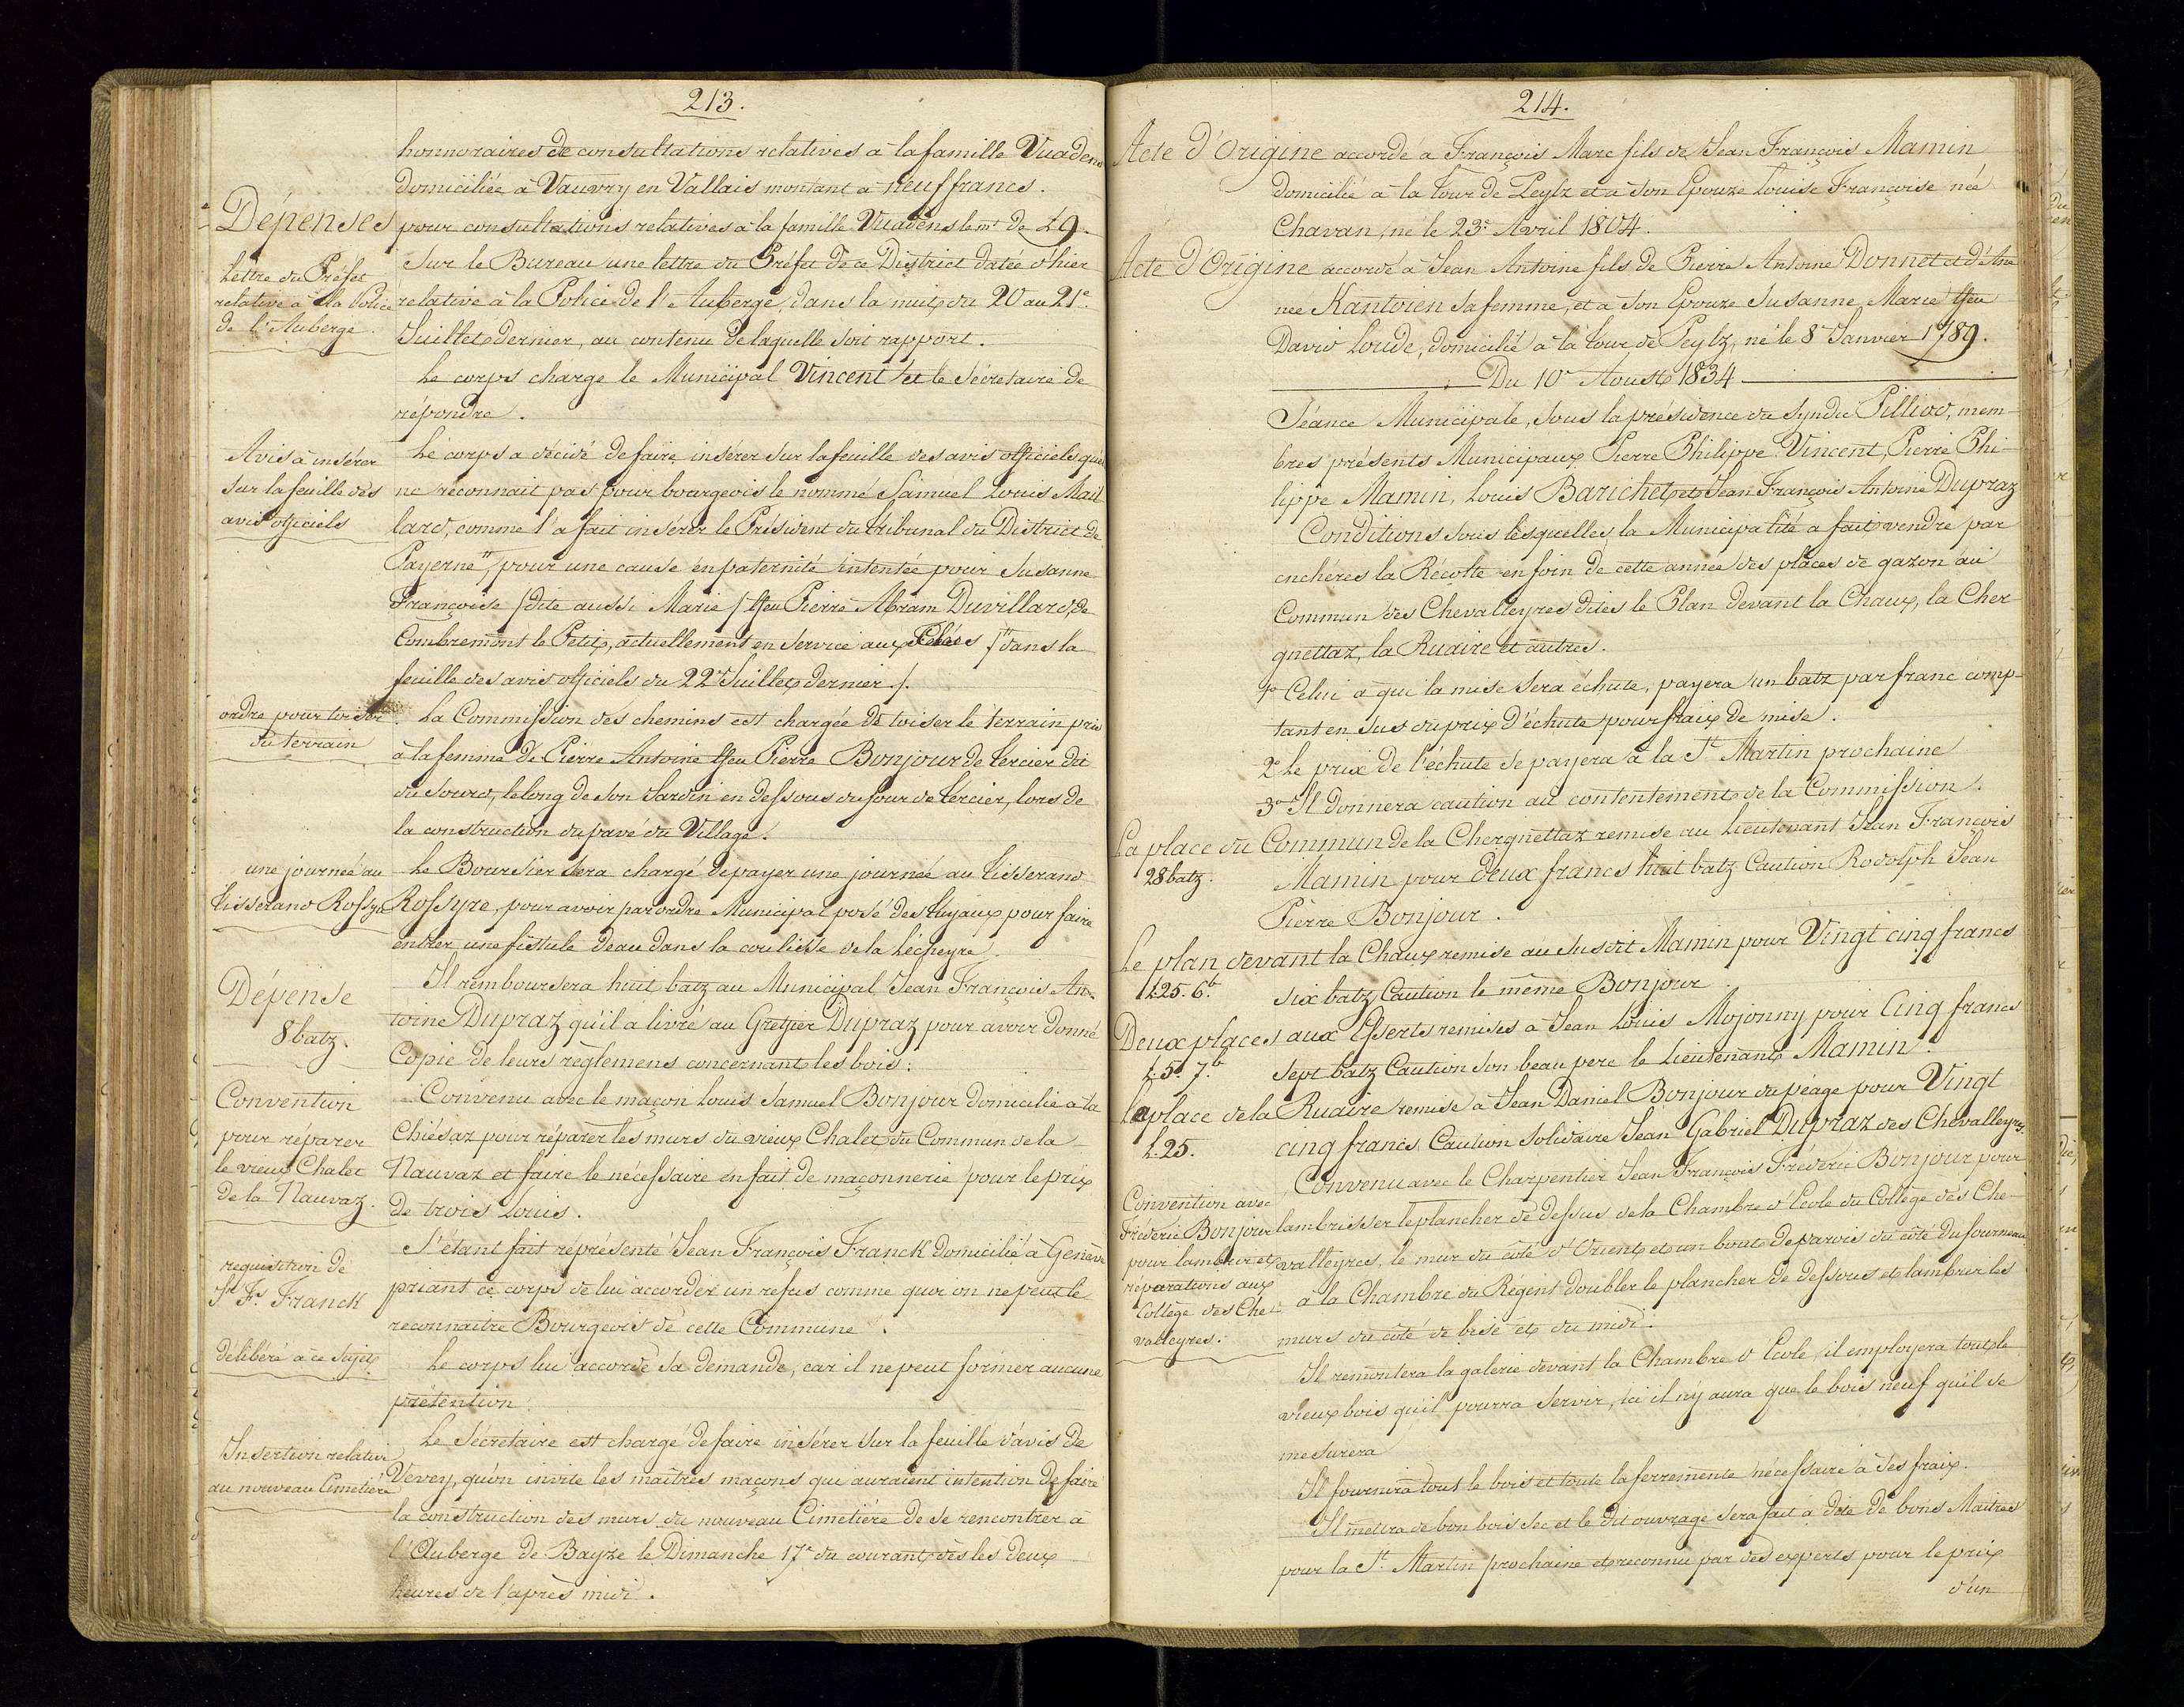 213.
honnoraires de consultations relatives à la famille Vuadens
domiciliée à Vauvry en Vallais montant à neuf francs.
Dépenses pour consultations relatives à la famille Vuadens le mt de £9.
Lettre du Préfet
relative à la Police
de l'Auberge.
Sur le Bureau une lettre du Préfet de ce District datée d'hier
relative à la Police de l'Auberge, dans la nuit du 20 au 21e
Juillet dernier, au contenu de laquelle soit rapport.
Le corps charge le Municipal Vincent et le Sécretaire de
répondre.
Avis à insérer
sur la feuille des
avis officiels
Le corps a décidé de faire insérer sur la feuille des avis officiels que
ne reconnait pas pour bourgeois le nommé Samuel Louis Mail
lard, comme l'a fait insérer le Président du tribunal du District de
Payerne, pour une cause en paternité intentée pour Susanne
Françoise / dite aussi Marie / ffeu Pierre Abram Duvillard, de
Combremont le Petit, actuellement en service aux / dans la
feuille des avis officiels du 22e Juillet dernier /.
ordre pour toiser
du terrain
La Commission des chemins est chargée de toiser le terrain pris
à la femme de Pierre Antoine ffeu Pierre Bonjour de tercier dit
du Sourd, le long de son Jardin en dessous du four de tércier, lors de
la construction du pavé du Village.
une journée au
tisserand Rossyre
Le Boursier sera chargé de payer une journée au tisserand
Rossyre, pour avoir par ordre Municipal posé des tuyaux pour faire
entrer une fistule d'eau dans la coulisse de la Lécheyre.
Dépense
8 batz.
Il remboursera huit batz au Municipal Jean François An-
toine Dupraz qu'il a livré au Greffier Dupraz pour avoir donné
Copie de leurs règlemens concernant les bois.
Convention
pour réparer
le vieux Chalet
de la Nauvaz.
Convenu avec le maçon Louis Samuel Bonjour domicilié à la
Chiésaz pour réparer les murs du vieux Chalet du Commun de la
Nauvaz et faire le nécessaire en fait de maçonnerie pour le prix
de trois Louis.
requisition de
Jn Fs Franck
S'étant fait réprésenté Jean François Franck domicilié à Genève
priant ce corps de lui accorder un refus comme quoi on ne peut le
reconnaitre Bourgeois de cette Commune.
délibéré à ce sujet
Le corps lui accorde sa demande, car il ne peut former aucune
prétention.
Insertion relative
au nouveau Cimetière
Le Sécretaire est chargé de faire insérer sur la feuille d'avis de
Vevey, qu'on invite les maitres maçons qui auraient intention de faire
la construction des murs du nouveau Cimetière de se rencontrer à
l'Auberge de Bayze le Dimanche 17e du courant dès les deux
heures de l'après midi.
214.
Acte d'Origine accordé à François Marc fils de Jean François Mamin
domicilié à la tour de Peylz et à son Epouze Louise Françoise née
Chavan, né le 23e Avril 1804.
Acte d'Origine accordé à Jean Antoine fils de Pierre Antoine Donnet et d'Ane
née Kantoien sa femme, et à son Epouze Susanne Marie ffeu
David Loude, domicilié à la tour de Peylz, né le 8e Janvier 1789.
Du 10e Aoust 1834
Séance Municipale, sous la présidence du Syndic Pilliod, mem-
bres présents Municipaux Pierre Philippe Vincent, Pierre Phi-
lippe Mamin, Louis Barichet, et Jean François Antoine Dupraz
Conditions sous lesquelles la Municipalité a fait vendre par
enchéres la Récolte en foin de cette année des places de gazon au
Commun des Chevalleyres dites le Plan devant la Chaux, la Cher-
gnettaz, la Ruaire et autres.
1o Celui à qui la mise sera échute, payera un batz par franc comp-
tant en sus du prix d'échute pour fraix de mise.
2o Le prix de l'échute se payera à la St Martin prochaine
3o Il donnera caution au contentement de la Commission.
La place du Commun de la Chergnettaz remise au Lieutenant Jean François
28 batz.
Mamin pour deux francs huit batz Caution Rodolph Jean
Pierre Bonjour.
Le plan devant la Chaux remise au susdit Mamin pour Vingt cinq francs
£25. 6b
six batz Caution le même Bonjour.
Deux places aux Esserts remises à Jean Louis Mojonny pour Cinq francs
£5. 7b
sept batz Caution son beau pere le Lieutenant Mamin.
La place de la Ruaire remise à Jean Daniel Bonjour du péage pour Vingt
£25.
cinq francs Caution Solidaire Jean Gabriel Dupraz des Chevalleyres.
Convention avec
Fréderic Bonjour
pour lambrer et
réparations aux
Collège des Che-
valleyres.
Convenu avec le Charpentier Jean François Fréderic Bonjour pour
lambrisser le plancher de dessus de la Chambre d'Ecole du Collège des Che-
valleyres, le mur du côté d'Orient et un bout de parois du côté du fourneau
à la Chambre du Régent doubler le plancher de dessous et lambrer les
murs du côté de bise et du midi.
Il remontera la galerie devant la Chambre d'Ecole, il employera tout le
vieux bois qu'il pourra servir, ici il n'y aura que le bois neuf qu'il se
mesurera
Il fournira tout le bois et toute la ferremente nécessaire à ses fraix.
Il mettra de bon bois sec et le dit ouvrage sera fait à dite de bons Maitres
pour la St Martin prochaine et reconnu par des experts pour le prix
d'un